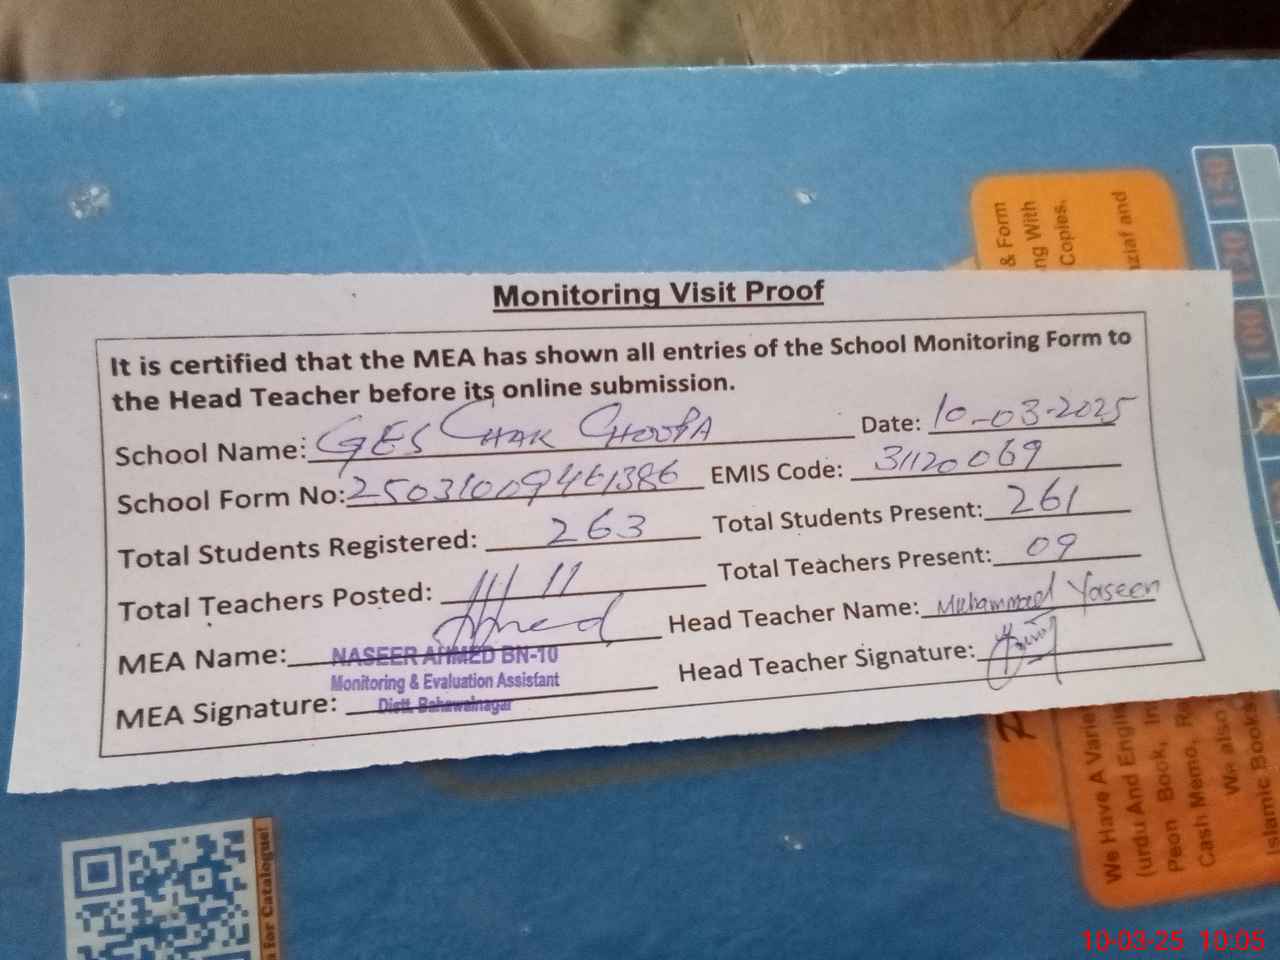 Monitoring Visit Proof
It is certified that the MEA has shown all entries of the School Monitoring Form to
the Head Teacher before its online submission.
School Name: GES CHAK CHOOPA Date: 10-03-2025
School Form No: 25031009461386 EMIS Code: 31120069
Total Students Registered: 263 Total Students Present: 261
Total Teachers Posted: 11 Total Teachers Present: 09
MEA Name: Head Teacher Name: Muhammad Yaseen
NASEER AHMED BN-10
Monitoring & Evaluation Assistant
Distt. Bahawalnagar
MEA Signature: Head Teacher Signature:
& Form
ng With
Copies.
nziaf and
150
120
100
We Have A Varie
(urdu And Engli
Peon Book, In
Cash Memo, Re
We also
Islamic Books
for Catalogue!
10-03-25 10:05